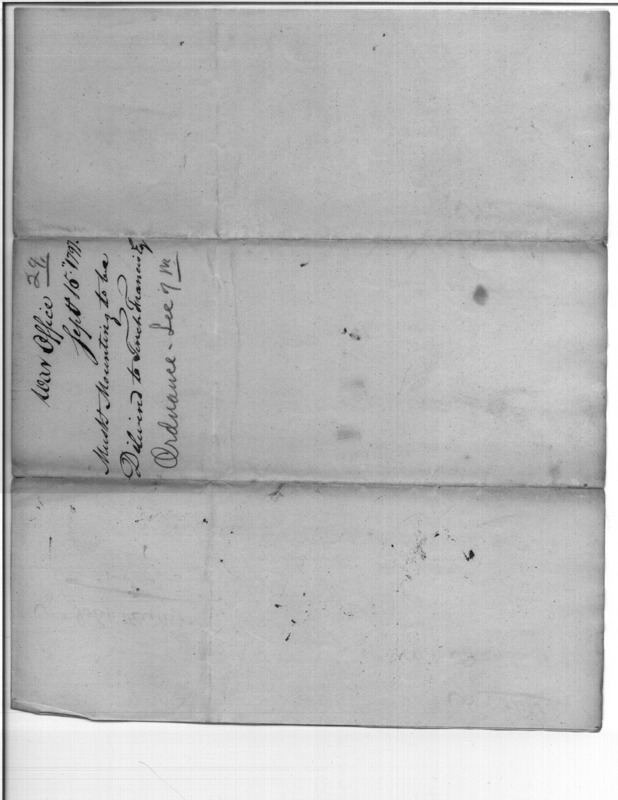 29
War Office
Sept 16th 1797.
Musk't Mounting to be
Deliverd to Tench Francis Esq
Ordnance - See 9 M